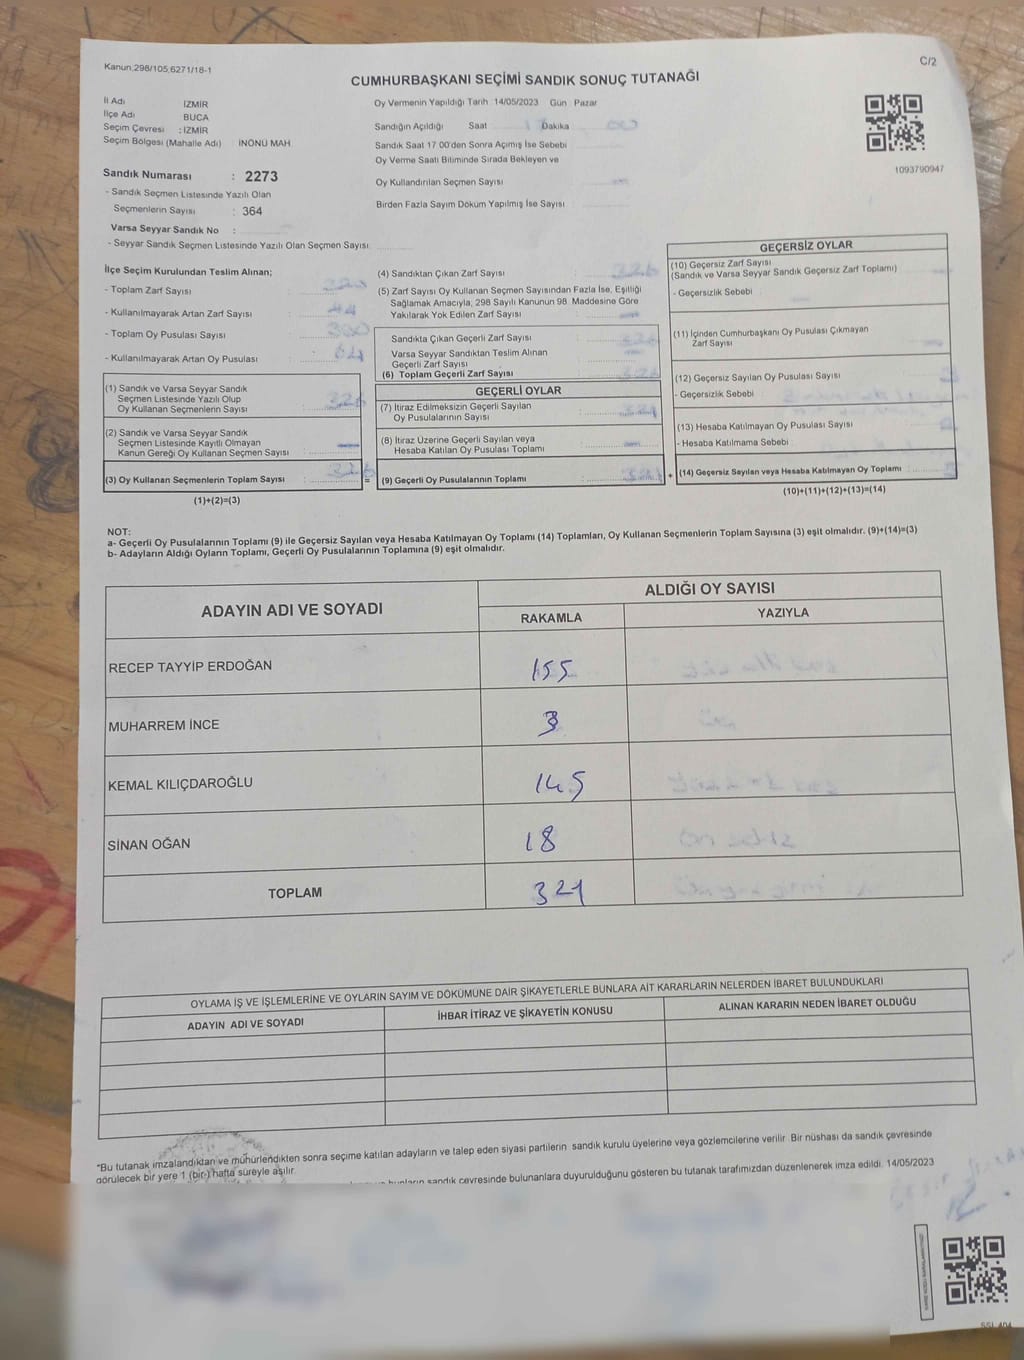 Kanun,298/105,6271/18-1
C/2
CUMHURBAŞKANI SEÇİMİ SANDIK SONUÇ TUTANAĞI
İl Adı İZMİR
İlçe Adı BUCA
Seçim Çevresi : İZMİR
Seçim Bölgesi (Mahalle Adı) İNÖNÜ MAH
Oy Vermenin Yapıldığı Tarih 14/05/2023 Gün Pazar
Sandığın Açıldığı Saat 17 Dakika 00
Sandık Saat 17 00'den Sonra Açımış İse Sebebi
Oy Verme Saati Bitiminde Sırada Bekleyen ve
Oy Kullandırılan Seçmen Sayısı
Birden Fazla Sayım Döküm Yapılmış İse Sayısı
1093790947
Sandık Numarası : 2273
- Sandık Seçmen Listesinde Yazılı Olan
Seçmenlerin Sayısı : 364
Varsa Seyyar Sandık No :
- Seyyar Sandık Seçmen Listesinde Yazılı Olan Seçmen Sayısı
İlçe Seçim Kurulundan Teslim Alınan;
- Toplam Zarf Sayısı
- Kullanılmayarak Artan Zarf Sayısı : 44
- Toplam Oy Pusulası Sayısı
- Kullanılmayarak Artan Oy Pusulası
(1) Sandık ve Varsa Seyyar Sandık
Seçmen Listesinde Yazılı Olup
Oy Kullanan Seçmenlerin Sayısı : 326
(2) Sandık ve Varsa Seyyar Sandık
Seçmen Listesinde Kayıtlı Olmayan
Kanun Gereği Oy Kullanan Seçmen Sayısı :
(3) Oy Kullanan Seçmenlerin Toplam Sayısı : 326
(1)+(2)=(3)
(4) Sandıktan Çıkan Zarf Sayısı : 326
(5) Zarf Sayısı Oy Kullanan Seçmen Sayısından Fazla İse, Eşitliği
Sağlamak Amacıyla; 298 Sayılı Kanunun 98. Maddesine Göre
Yakılarak Yok Edilen Zarf Sayısı
Sandıkta Çıkan Geçerli Zarf Sayısı : 326
Varsa Seyyar Sandıktan Teslim Alınan
Geçerli Zarf Sayısı
(6) Toplam Geçerli Zarf Sayısı : 326
GEÇERLİ OYLAR
(7) İtiraz Edilmeksizin Geçerli Sayılan
Oy Pusulalarının Sayısı : 321
(8) İtiraz Üzerine Geçerli Sayılan veya
Hesaba Katılan Oy Pusulası Toplamı
= (9) Geçerli Oy Pusulalarının Toplamı : 321
GEÇERSİZ OYLAR
(10) Geçersiz Zarf Sayısı
(Sandık ve Varsa Seyyar Sandık Geçersiz Zarf Toplamı)
- Geçersizlik Sebebi
(11) İçinden Cumhurbaşkanı Oy Pusulası Çıkmayan
Zarf Sayısı
(12) Geçersiz Sayılan Oy Pusulası Sayısı
- Geçersizlik Sebebi
(13) Hesaba Katılmayan Oy Pusulası Sayısı
- Hesaba Katılmama Sebebi
+ (14) Geçersiz Sayılan veya Hesaba Katılmayan Oy Toplamı
(10)+(11)+(12)+(13)=(14)
NOT:
a- Geçerli Oy Pusulalarının Toplamı (9) ile Geçersiz Sayılan veya Hesaba Katılmayan Oy Toplamı (14) Toplamları, Oy Kullanan Seçmenlerin Toplam Sayısına (3) eşit olmalıdır. (9)+(14)=(3)
b- Adayların Aldığı Oyların Toplamı, Geçerli Oy Pusulalarının Toplamına (9) eşit olmalıdır.
ADAYIN ADI VE SOYADI ALDIĞI OY SAYISI
RAKAMLA YAZIYLA
RECEP TAYYİP ERDOĞAN 155
MUHARREM İNCE 3
KEMAL KILIÇDAROĞLU 145
SİNAN OĞAN 18 on sekiz
TOPLAM 321
OYLAMA İŞ VE İŞLEMLERİNE VE OYLARIN SAYIM VE DÖKÜMÜNE DAİR ŞİKAYETLERLE BUNLARA AİT KARARLARIN NELERDEN İBARET BULUNDUKLARI
ADAYIN ADI VE SOYADI İHBAR İTİRAZ VE ŞİKAYETİN KONUSU ALINAN KARARIN NEDEN İBARET OLDUĞU
*Bu tutanak imzalandıktan ve mühürlendikten sonra seçime katılan adayların ve talep eden siyasi partilerin sandık kurulu üyelerine veya gözlemcilerine verilir Bir nüshası da sandık çevresinde
görülecek bir yere 1 (bir) hafta süreyle asılır
bunların sandık çevresinde bulunanlara duyurulduğunu gösteren bu tutanak tarafımızdan düzenlenerek imza edildi. 14/05/2023